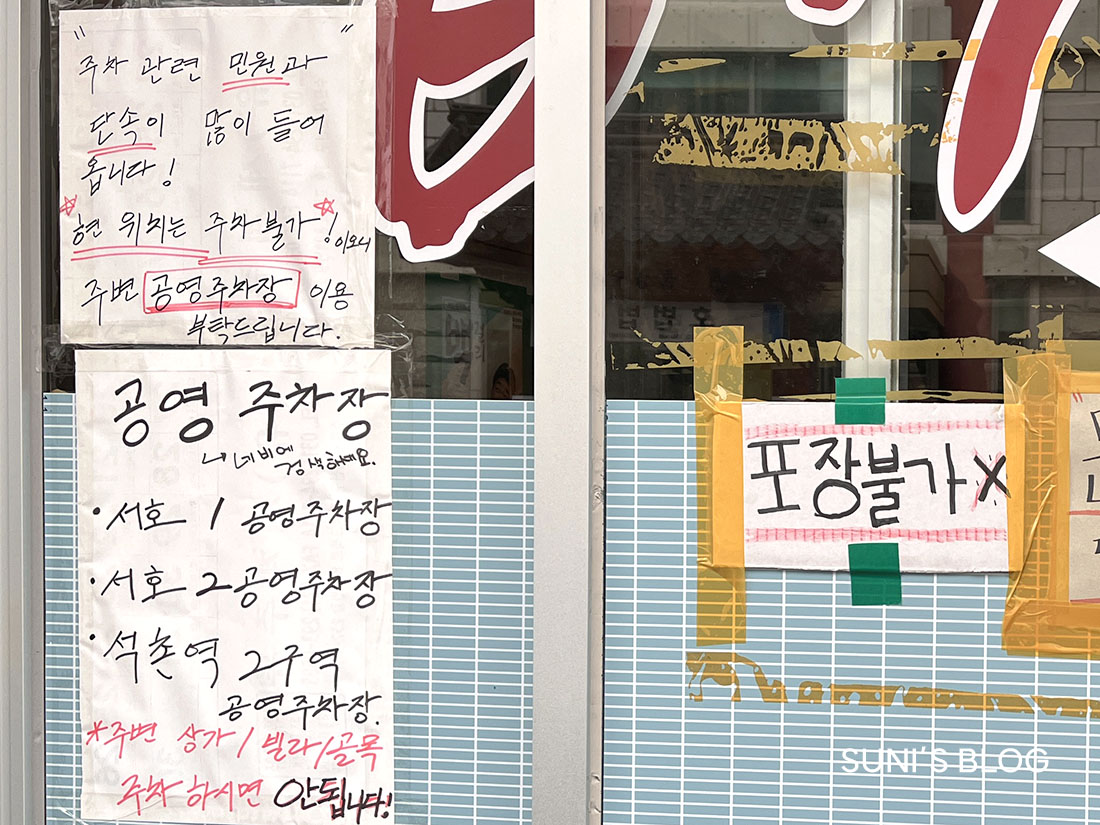 " 주차 관련 민원과 "
단속이 많이 들어
옵니다!
☆현 위치는 주차불가☆! 이오니
주변 공영주차장 이용
부탁드립니다.
공영 주차장
↳ 네비에
검색하세요.
· 서호 1 공영주차장
· 서호 2 공영주차장
· 석촌역 2구역
공영주차장.
*주변 상가/빌라/골목
주차 하시면 안됩니다!
포장불가X
SUNI'S BLOG